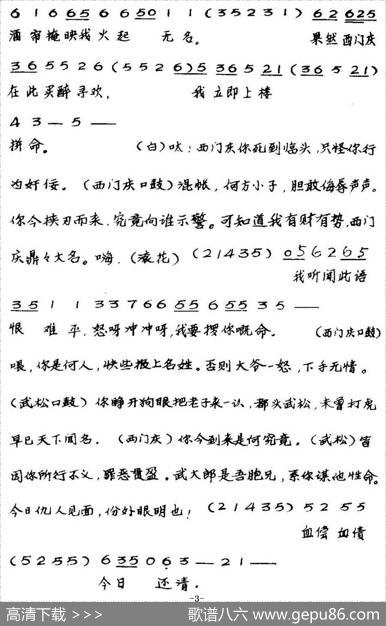 6 1 6 65 6 6 50 1 1 (3 5 2 3 1) 6 2 6 25
酒帘掩映我火起 无名。 果然西门庆
3 6 5 5 2 6 (5 5 2 6) 5 3 6 5 2 1 (3 6 5 2 1)
在此买醉寻欢, 我立即上楼
4 3 — 5 —
拼命。 (白)呔:西门庆你死到临头,只怪你行
为奸佞。(西门庆口鼓)混帐,何方小子,胆敢侮辱声声。
你今挟刃而来,究竟向谁示警。可知道我有财有势,西门
庆鼎々大名。嗨.(滚花) (2 1 4 3 5) 0 5 6 2 6 5
我听闻此语
3 5 1 1 3 3 7 6 6 5 5 6 5 5 3 5 —
恨 难平,怒呀冲呀冲,我要攞你嘅命。 (西门庆口鼓)
喂,你是何人,快些报上名姓。否则大爷一怒,下手无情。
(武松口鼓)你睁开狗眼把老子来一认,都头武松,未曾打虎
早已天下闻名。(西门庆)你今到来是何究竟。(武松)皆
因你所行不义,罪恶贯盈。武大郎是吾胞兄,系你谋他性命。
今日仇人见面,份外眼明也! (2 1 4 3 5) 5 2 5 5
血偿 血债
(5 2 5 5) 6 3 5 0 6 3 — 2 1 —
今日 还清.
-3-
高清下载 >>>
歌谱八六 www.gepu86.com